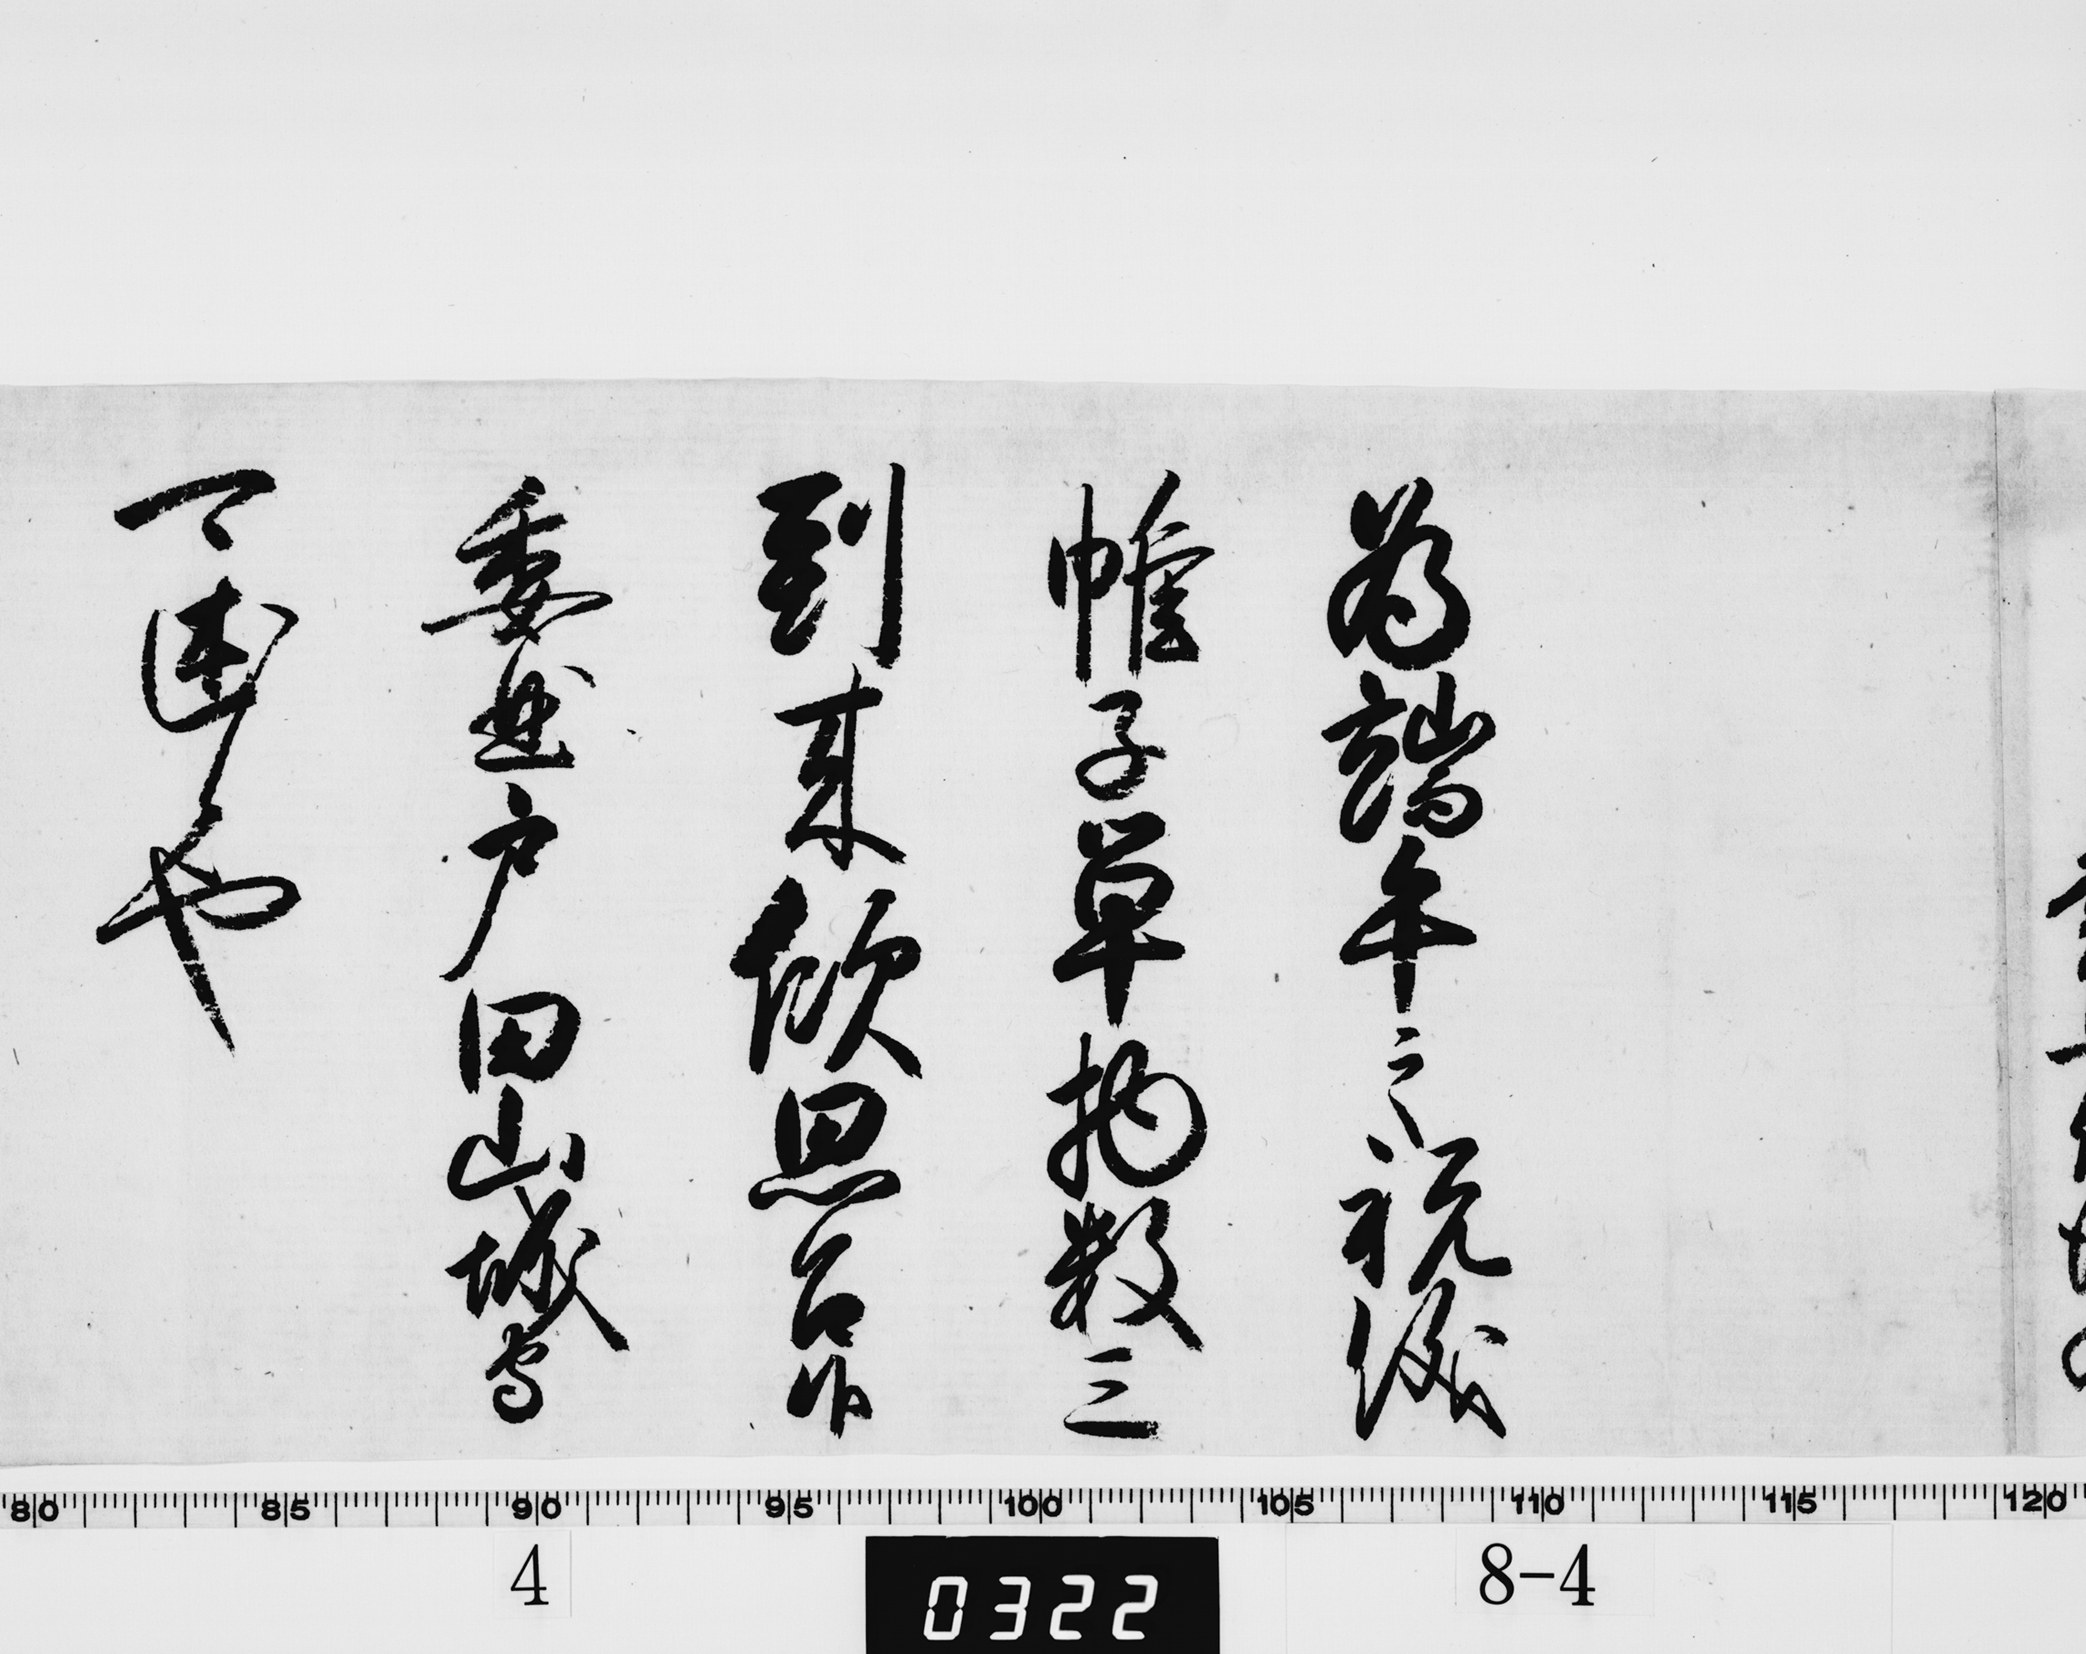 為端午之祝儀
帷子單物数三
到来欣思召候
委曲戸田山城守
可述候也
80 85 90 95 100 105 110 115 120
4
0322
8-4